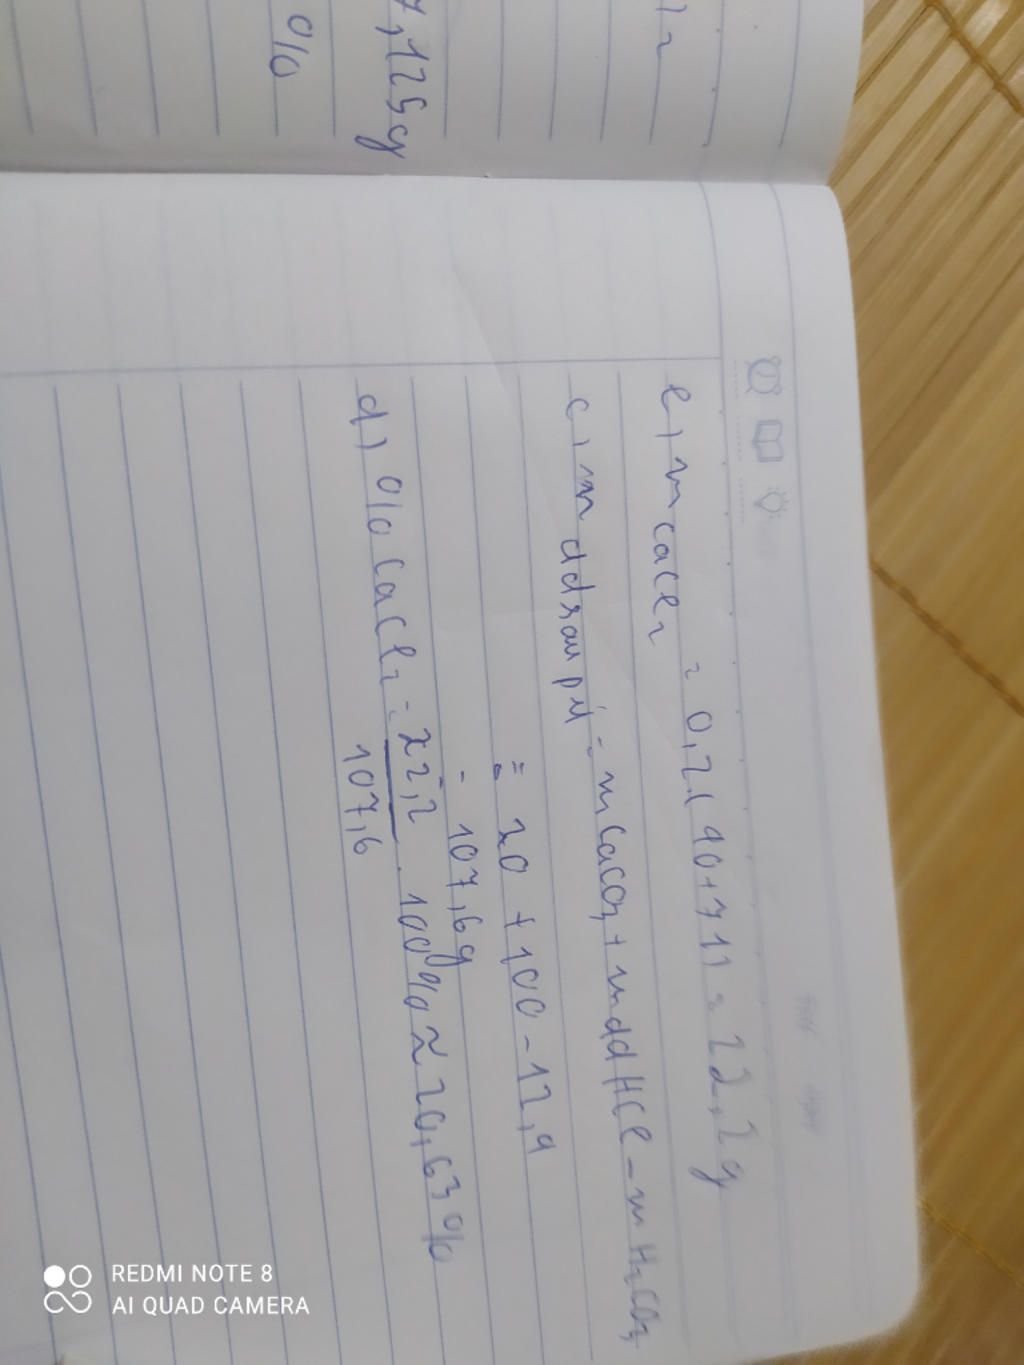 7,125g
%
b, mCaCl2 = 0,2.(40+71) = 22,2g
c, m dd sau pứ = mCaCO3 + mddHCl - mH2CO3
= 20 + 100 - 12,4
= 107,6g
d) % CaCl2 = 22,2/107,6 . 100% ≈ 20,63%
REDMI NOTE 8
AI QUAD CAMERA